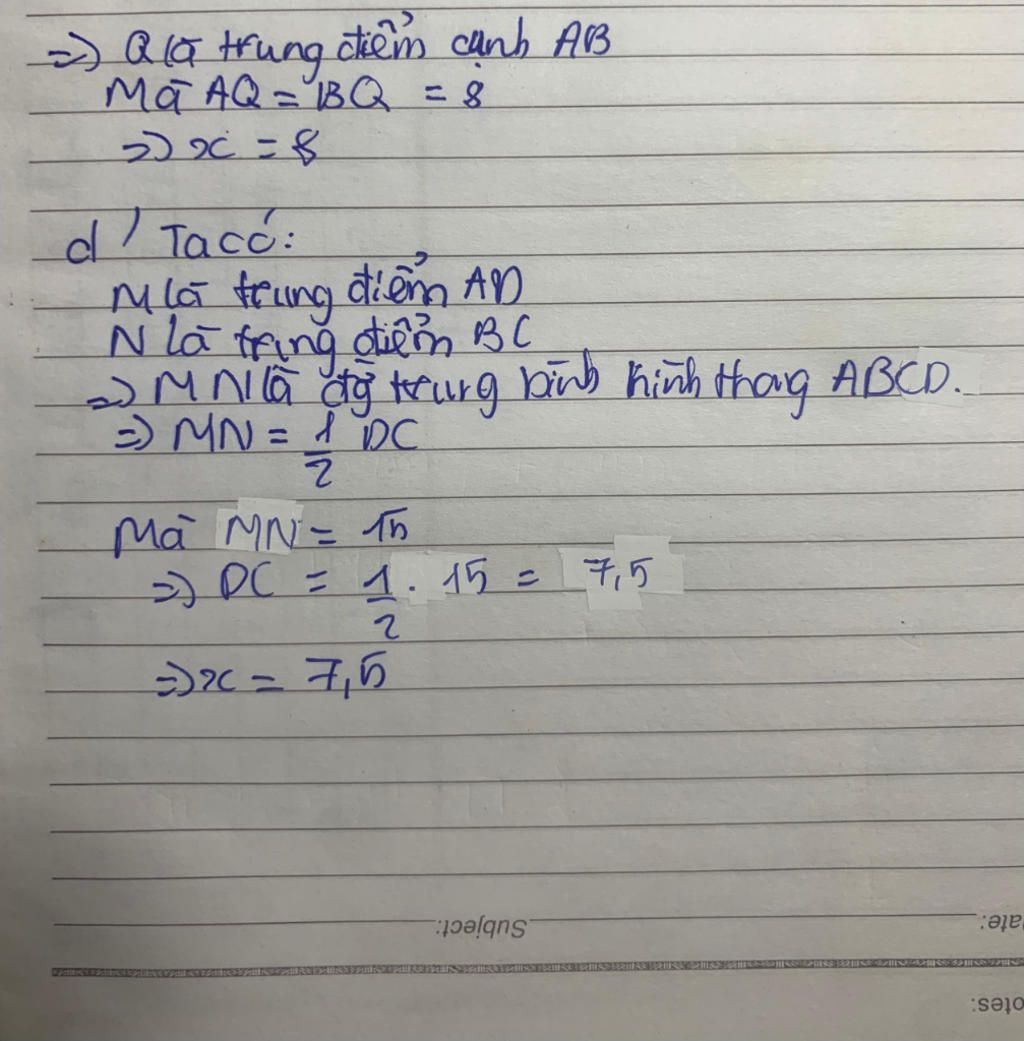 => Q là trung điểm cạnh AB
Mà AQ = BQ = 8
=> x = 8
d / Ta có:
M là trung điểm AD
N là trung điểm BC
=> MN là đg trung bình hình thang ABCD.
=> MN = 1/2 DC
Mà MN = 15
=> DC = 1/2 . 15 = 7,5
=> x = 7,5
Subject:
ate:
otes: